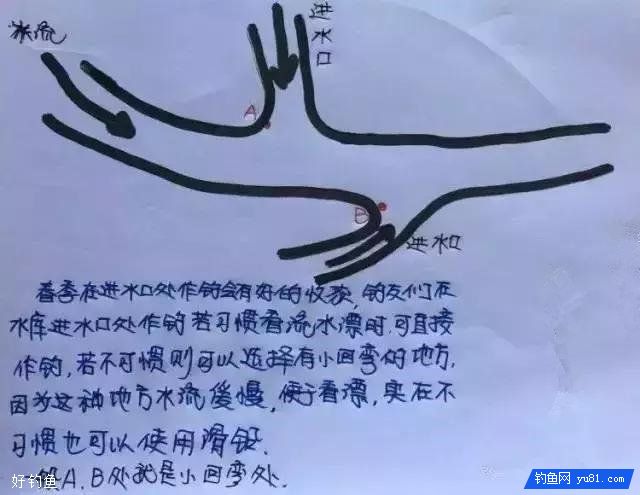 水流
进水口
A
B
进水口
春季在进水口处作钓会有好的收获，钓友们在
水库进水口处作钓若习惯看流水漂时，可直接
作钓，若不习惯则可以选择有小回弯的地方，
因为这种地方水流缓慢，便于看漂，实在不
习惯也可以使用滑铅.
A、B处就是小回弯处.
好钓鱼
钓鱼网 yu81.com